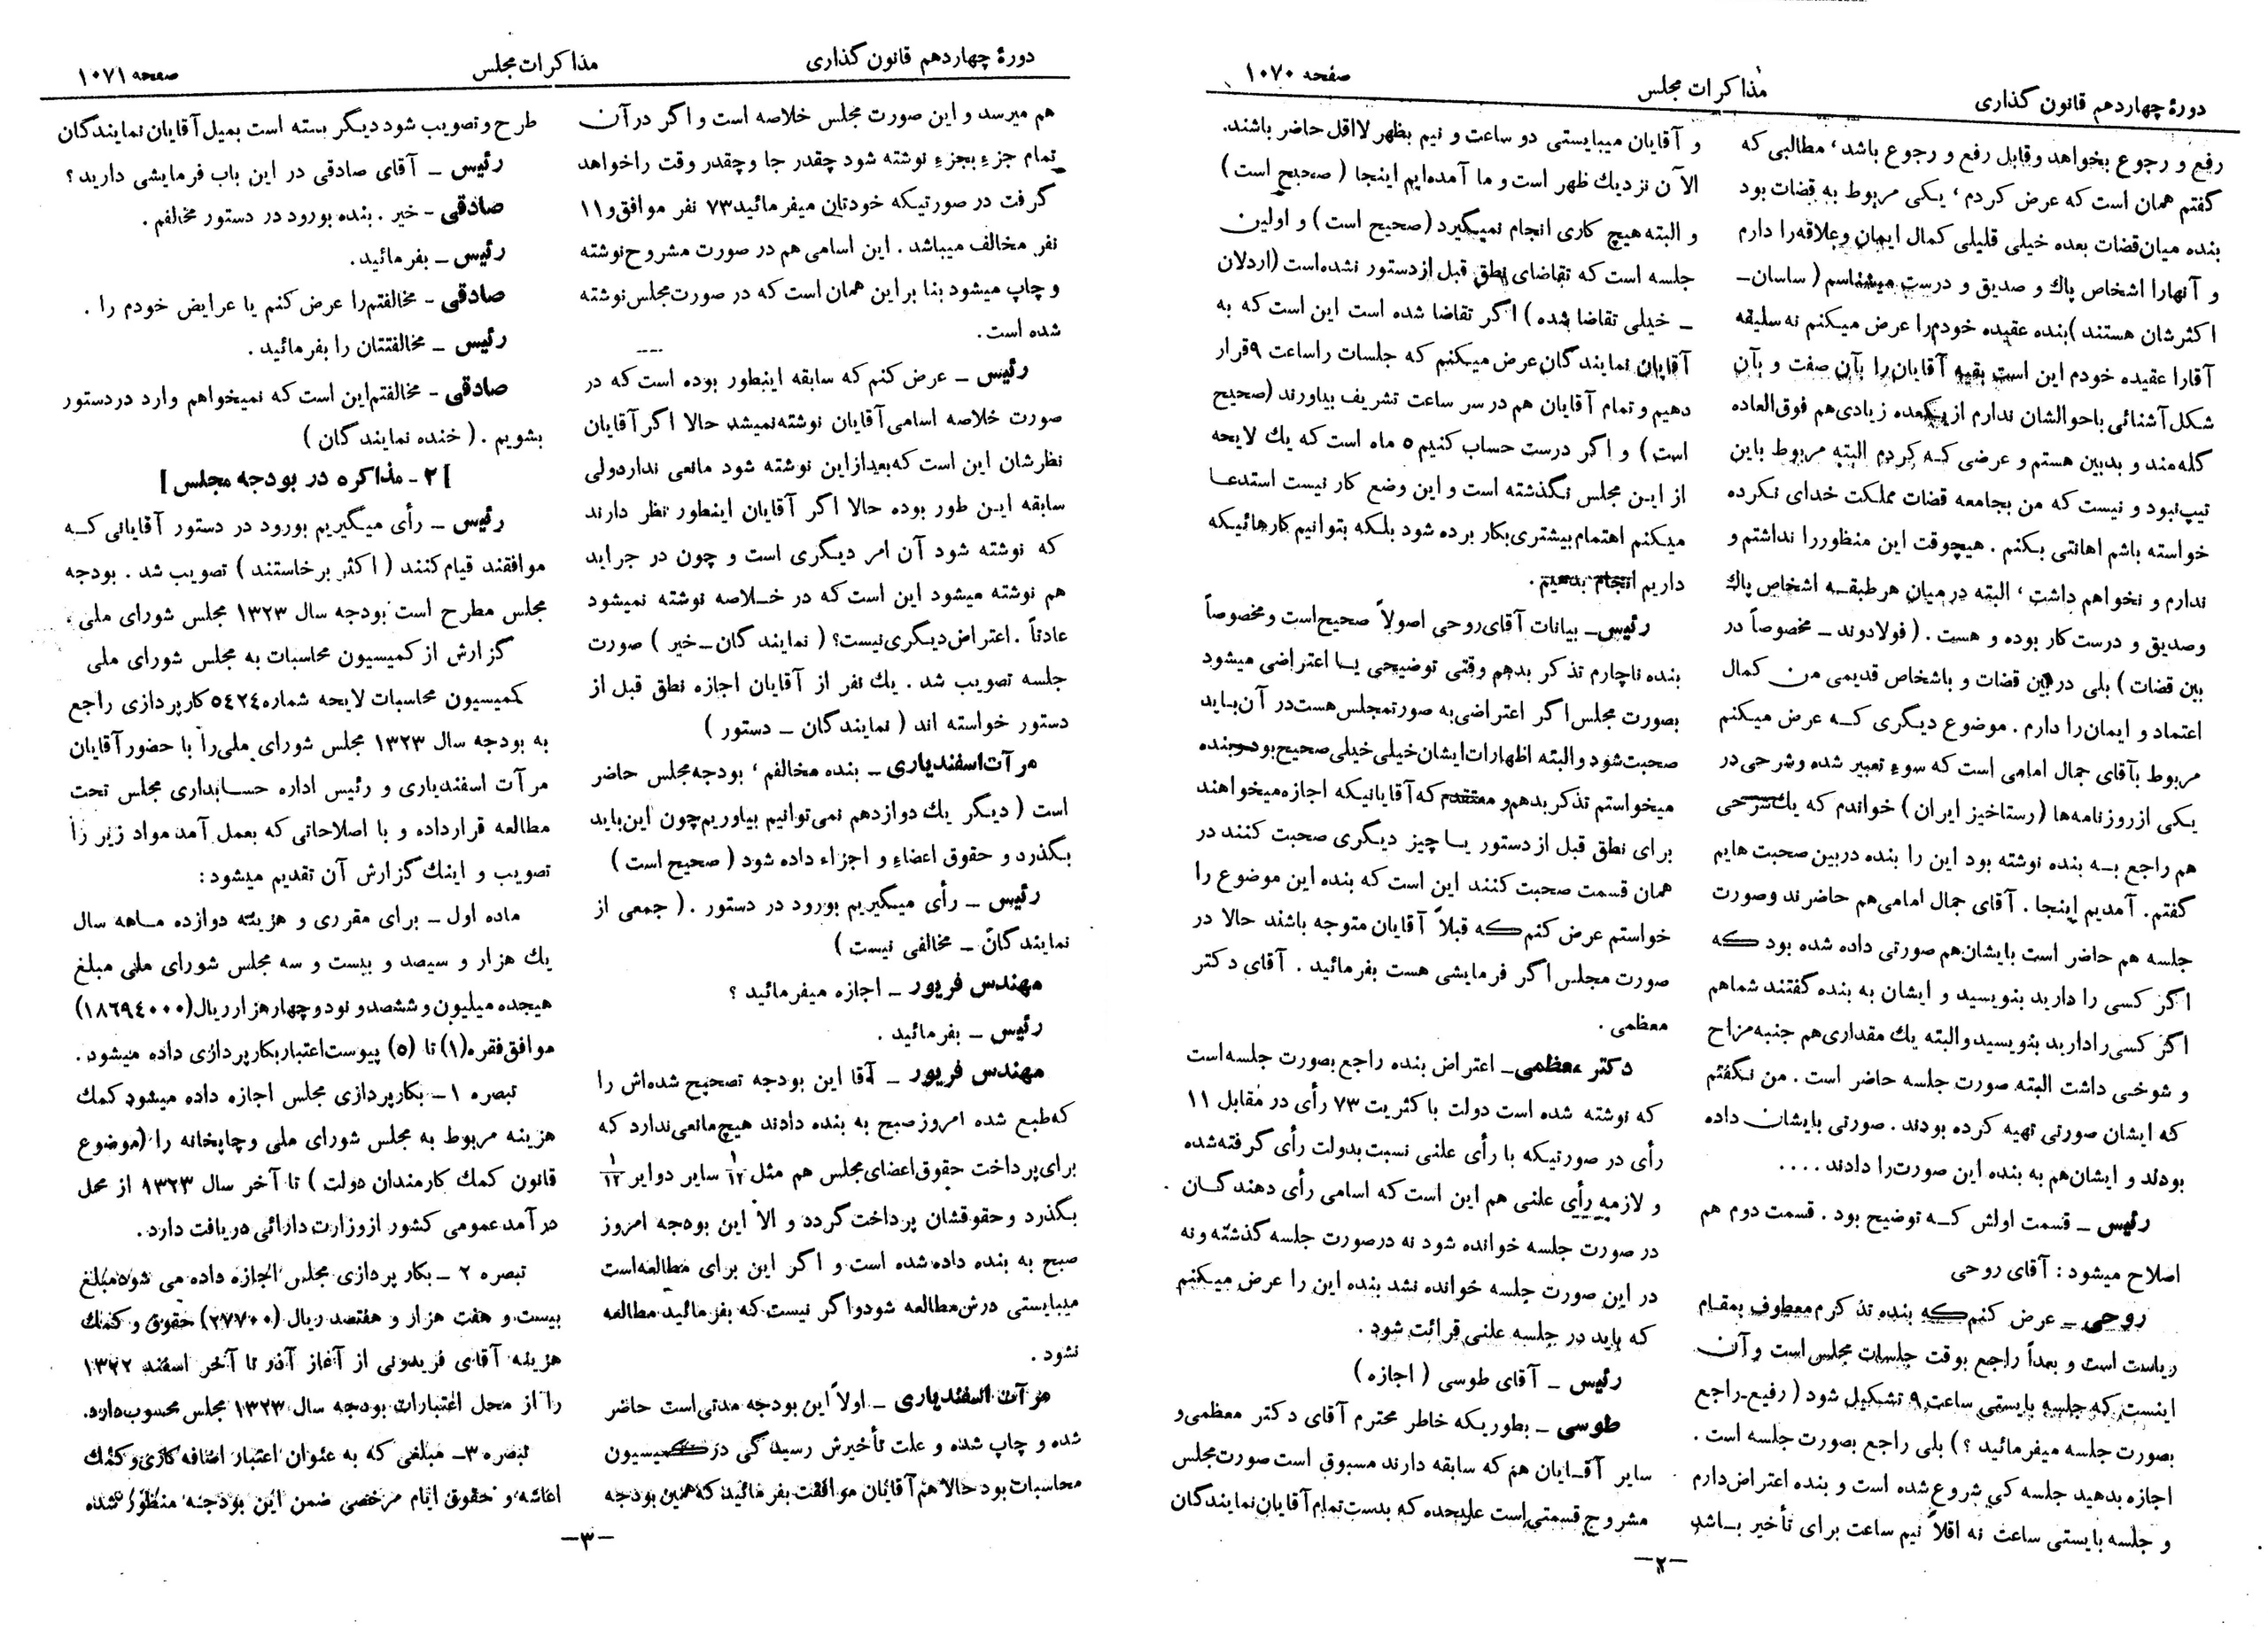 دورهٔ چهاردهم قانون گذاری
مذاکرات مجلس
صفحه ۱۰۷۰
رفع و رجوع بخواهد وقابل رفع و رجوع باشد، مطالبی که
گفتم همان است که عرض کردم، یکی مربوط به قضات بود
بنده میان قضات بعده خیلی قلیلی کمال ایمان وعلاقه را دارم
و آنهارا اشخاص پاك و صدیق و درست میشناسم (ساسان ــ
اکثرشان هستند) بنده عقیده خودم را عرض میکنم نه سلیقه
آقارا عقیده خودم این است بقیه آقایان را بآن صفت و بآن
شکل آشنائی باحوالشان ندارم از یکعده زیادی هم فوق العاده
گله مند و بدبین هستم و عرضی که کردم البته مربوط باین
تیپ نبود و نیست که من بجامعه قضات مملکت خدای نکرده
خواسته باشم اهانتی بکنم . هیچوقت این منظوررا نداشتم و
ندارم و نخواهم داشت، البته درمیان هرطبقه اشخاص پاك
وصدیق و درست کار بوده و هست . (فولادوند ــ مخصوصاً در
بین قضات) بلی دربین قضات و باشخاص قدیمی من کمال
اعتماد و ایمان را دارم . موضوع دیگری که عرض میکنم
مربوط بآقای جمال امامی است که سوء تعبیر شده وشرحی در
یکی ازروزنامه ها (رستاخیز ایران) خواندم که یك شرحی
هم راجع به بنده نوشته بود این را بنده دربین صحبت هایم
گفتم . آمدیم اینجا . آقای جمال امامی هم حاضرند وصورت
جلسه هم حاضر است بایشان هم صورتی داده شده بود که
اگر کسی را دارید بنویسید و ایشان به بنده گفتند شماهم
اگر کسی را دارید بنویسید والبته یك مقداری هم جنبه مزاح
و شوخی داشت البته صورت جلسه حاضر است . من نگفتم
که ایشان صورتی تهیه کرده بودند . صورتی بایشان داده
بودند و ایشان هم به بنده این صورت را دادند ....
رئیس ــ قسمت اولش که توضیح بود . قسمت دوم هم
اصلاح میشود : آقای روحی
روحی ــ عرض کنم که بنده تذکرم معطوف بمقام
ریاست است و بعداً راجع بوقت جلسات مجلس است و آن
اینست که جلسه بایستی ساعت ۹ تشکیل شود (رفیع ــ راجع
بصورت جلسه میفرمائید ؟) بلی راجع بصورت جلسه است .
اجازه بدهید جلسه کی شروع شده است و بنده اعتراض دارم
و جلسه بایستی ساعت نه اقلاً نیم ساعت برای تأخیر باشد
و آقایان میبایستی دو ساعت و نیم بظهر لااقل حاضر باشند.
الآن نزدیك ظهر است و ما آمده ایم اینجا (صحیح است)
و البته هیچ کاری انجام نمیگیرد (صحیح است) و اولین
جلسه است که تقاضای نطق قبل ازدستور نشده است (اردلان
ــ خیلی تقاضا شده) اگر تقاضا شده است این است که به
آقایان نمایندگان عرض میکنم که جلسات راساعت ۹ قرار
دهیم و تمام آقایان هم درسر ساعت تشریف بیاورند (صحیح
است) و اگر درست حساب کنیم ۵ ماه است که یك لایحه
از این مجلس نگذشته است و این وضع کار نیست استدعا
میکنم اهتمام بیشتری بکار برده شود بلکه بتوانیم کارهائیکه
داریم انجام بدهیم .
رئیس ــ بیانات آقای روحی اصولاً صحیح است و مخصوصاً
بنده ناچارم تذکر بدهم وقتی توضیحی یا اعتراضی میشود
بصورت مجلس اگر اعتراضی به صورتمجلس هست در آن باید
صحبت شود والبته اظهارات ایشان خیلی خیلی صحیح بود وبنده
میخواستم تذکر بدهم و معتقدم که آقایانیکه اجازه میخواهند
برای نطق قبل از دستور یا چیز دیگری صحبت کنند در
همان قسمت صحبت کنند این است که بنده این موضوع را
خواستم عرض کنم که قبلاً آقایان متوجه باشند حالا در
صورت مجلس اگر فرمایشی هست بفرمائید . آقای دکتر
معظمی .
دکتر معظمی ــ اعتراض بنده راجع بصورت جلسه است
که نوشته شده است دولت باکثریت ۷۳ رأی در مقابل ۱۱
رأی در صورتیکه با رأی علنی نسبت بدولت رأی گرفته شده
و لازمه رأی علنی هم این است که اسامی رأی دهندگان .
در صورت جلسه خوانده شود نه درصورت جلسه گذشته و نه
در این صورت جلسه خوانده نشد بنده این را عرض میکنم
که باید در جلسه علنی قرائت شود .
رئیس ــ آقای طوسی (اجازه)
طوسی ــ بطوریکه خاطر محترم آقای دکتر معظمی و
سایر آقایان هم که سابقه دارند مسبوق است صورت مجلس
مشروح قسمتی است علیحده که بدست تمام آقایان نمایندگان
ــ۲ــ
دورهٔ چهاردهم قانون گذاری
مذاکرات مجلس
صفحه ۱۰۷۱
هم میرسد و این صورت مجلس خلاصه است و اگر در آن
تمام جزء بجزء نوشته شود چقدر جا و چقدر وقت را خواهد
گرفت در صورتیکه خودتان میفرمائید ۷۳ نفر موافق و ۱۱
نفر مخالف میباشد . این اسامی هم در صورت مشروح نوشته
و چاپ میشود بنا بر این همان است که در صورت مجلس نوشته
شده است .
رئیس ــ عرض کنم که سابقه اینطور بوده است که در
صورت خلاصه اسامی آقایان نوشته نمیشد حالا اگر آقایان
نظرشان این است که بعد از این نوشته شود مانعی ندارد ولی
سابقه این طور بوده حالا اگر آقایان اینطور نظر دارند
که نوشته شود آن امر دیگری است و چون در جراید
هم نوشته میشود این است که در خلاصه نوشته نمیشود
عادتاً . اعتراض دیگری نیست؟ (نمایندگان ــ خیر) صورت
جلسه تصویب شد . یك نفر از آقایان اجازه نطق قبل از
دستور خواسته اند (نمایندگان ــ دستور)
مرآت اسفندیاری ــ بنده مخالفم ، بودجه مجلس حاضر
است (دیگر یك دوازدهم نمی توانیم بیاوریم چون این باید
بگذرد و حقوق اعضاء و اجزاء داده شود (صحیح است)
رئیس ــ رأی میگیریم بورود در دستور . (جمعی از
نمایندگان ــ مخالفی نیست)
مهندس فریور ــ اجازه میفرمائید ؟
رئیس ــ بفرمائید .
مهندس فریور ــ آقا این بودجه تصحیح شده اش را
که طبع شده امروز صبح به بنده دادند هیچ مانعی ندارد که
برای پرداخت حقوق اعضای مجلس هم مثل ۱/۱۲ سایر دوایر ۱/۱۲
بگذرد و حقوقشان پرداخت گردد و الا این بودجه امروز
صبح به بنده داده شده است و اگر این برای مطالعه است
میبایستی درش مطالعه شود و اگر نیست که بفرمائید مطالعه
نشود .
مرآت اسفندیاری ــ اولاً این بودجه مدتی است حاضر
شده و چاپ شده و علت تأخیرش رسیدگی در کمیسیون
محاسبات بود حالا هم آقایان موافقت بفرمائید که همین بودجه
طرح و تصویب شود دیگر بسته است بمیل آقایان نمایندگان
رئیس ــ آقای صادقی در این باب فرمایشی دارید ؟
صادقی ــ خیر . بنده بورود در دستور مخالفم .
رئیس ــ بفرمائید .
صادقی ــ مخالفتم را عرض کنم یا عرایض خودم را .
رئیس ــ مخالفتتان را بفرمائید .
صادقی ــ مخالفتم این است که نمیخواهم وارد در دستور
بشویم . (خنده نمایندگان)
[۲ــ مذاکره در بودجه مجلس]
رئیس ــ رأی میگیریم بورود در دستور آقایانی که
موافقند قیام کنند (اکثر برخاستند) تصویب شد . بودجه
مجلس مطرح است بودجه سال ۱۳۲۳ مجلس شورای ملی .
گزارش از کمیسیون محاسبات به مجلس شورای ملی
کمیسیون محاسبات لایحه شماره ۵۴۲۴ کارپردازی راجع
به بودجه سال ۱۳۲۳ مجلس شورای ملی را با حضور آقایان
مرآت اسفندیاری و رئیس اداره حسابداری مجلس تحت
مطالعه قرارداده و با اصلاحاتی که بعمل آمد مواد زیر را
تصویب و اینك گزارش آن تقدیم میشود :
ماده اول ــ برای مقرری و هزینه دوازده ماهه سال
یك هزار و سیصد و بیست و سه مجلس شورای ملی مبلغ
هیجده میلیون و ششصد و نود و چهار هزار ریال (۱۸۶۹۴۰۰۰)
موافق فقره (۱) تا (۵) پیوست اعتبار بکارپردازی داده میشود .
تبصره ۱ ــ بکارپردازی مجلس اجازه داده میشود کمك
هزینه مربوط به مجلس شورای ملی و چاپخانه را (موضوع
قانون کمك کارمندان دولت) تا آخر سال ۱۳۲۳ از محل
درآمد عمومی کشور از وزارت دارائی دریافت دارد .
تبصره ۲ ــ بکارپردازی مجلس اجازه داده می شود مبلغ
بیست و هفت هزار و هفتصد ریال (۲۷۷۰۰) حقوق و کمك
هزینه آقای فریدونی از آغاز آذر تا آخر اسفند ۱۳۲۲
را از محل اعتبارات بودجه سال ۱۳۲۳ مجلس محسوب دارد.
تبصره ۳ــ مبلغی که به عنوان اعتبار اضافه کاری و کمك
اعاشه و حقوق ایام مرخصی ضمن این بودجه منظور شده
ــ۳ــ